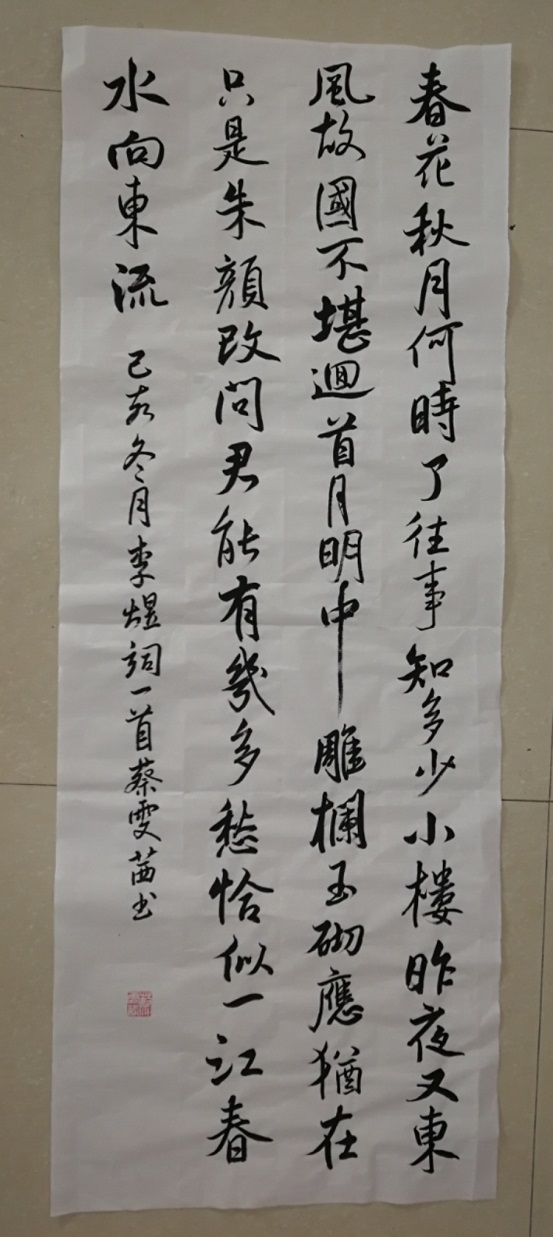 春花秋月何時了往事知多少小樓昨夜又東
風故國不堪迴首月明中雕欄玉砌應猶在
只是朱顔改問君能有幾多愁恰似一江春
水向東流
己亥冬月李煜詞一首蔡雯茜书